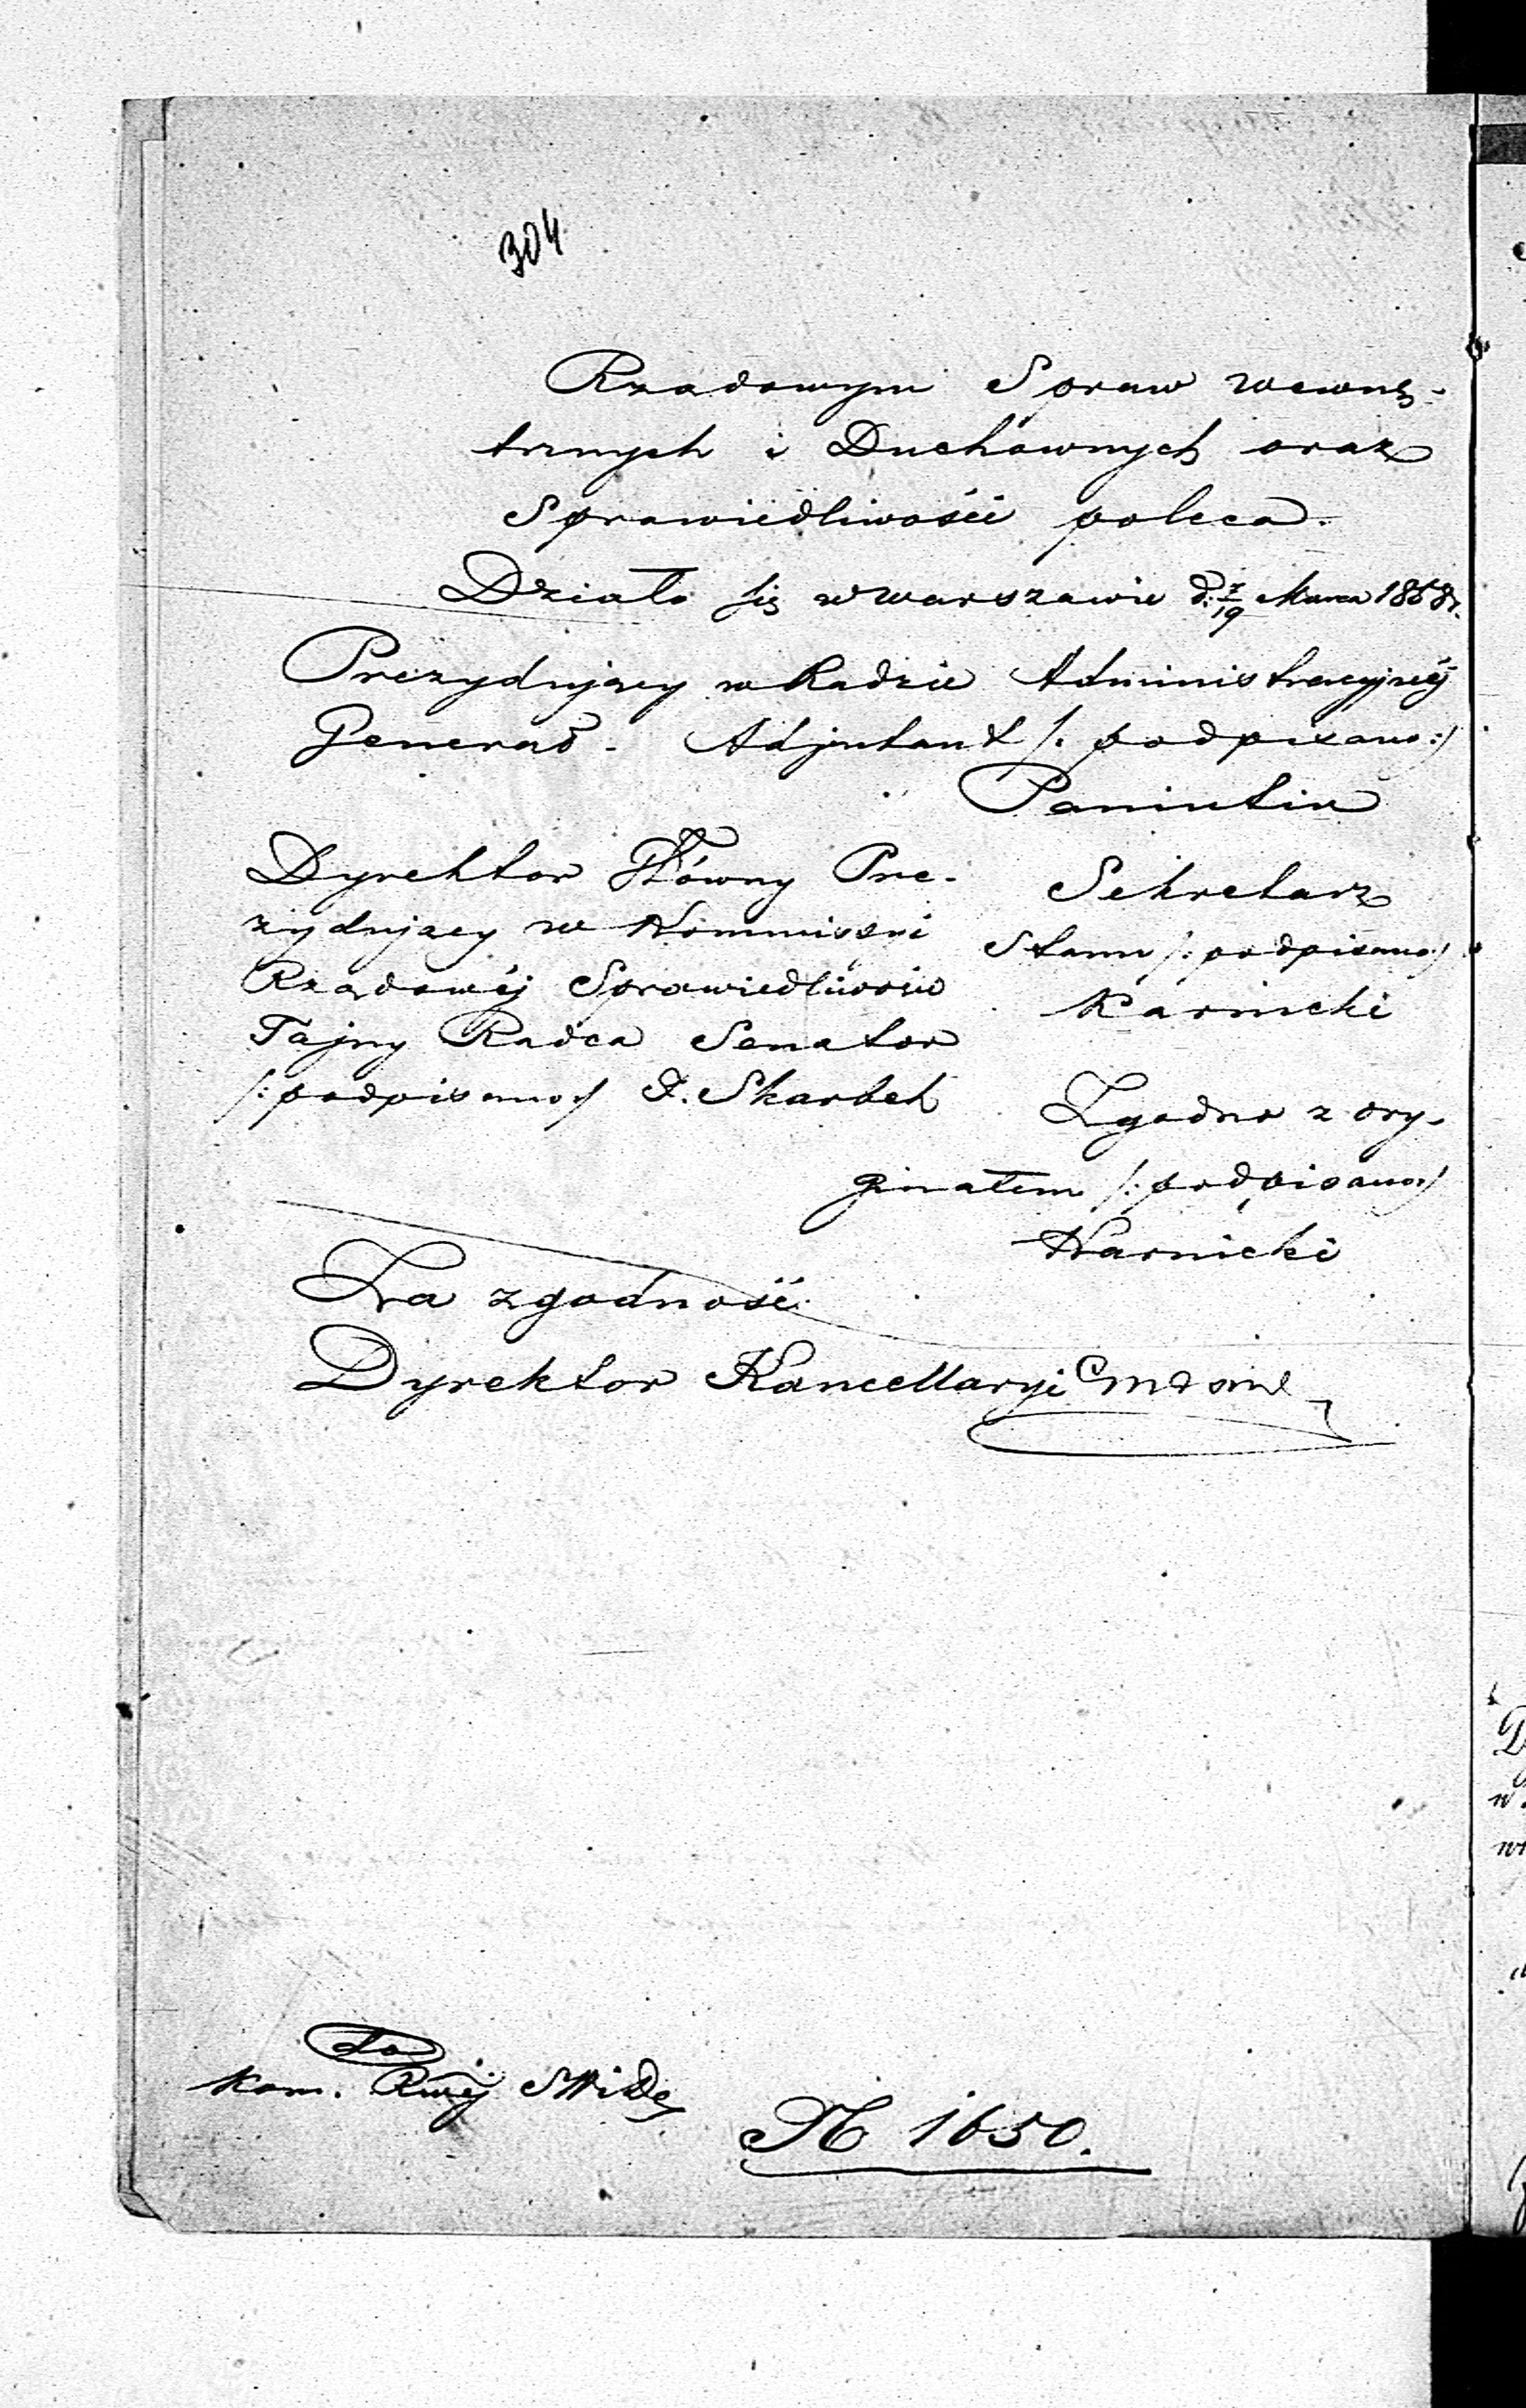 304
Rządowym Spraw Wewnę-
trznych i Duchownych oraz
Sprawiedliwości poleca.
Działo się w Warszawie d. 7/19 Marca 1858 r.
Prezydujący w Radzie Administracyjnéj
Generał-Adjutant /: podpisano :/
Paniutin
Dyrektor Główny Pre-
zydujący w Kommissyi
Rządowéj Sprawiedliwości
Tajny Radca Senator
/: podpisano :/ F. Skarbek
Sekretarz
Stanu /: podpisano :/
Karnicki
Zgodno z ory-
ginałem /: podpisano :/
Karnicki
Za zgodność
Dyrektor Kancellaryi
do
Kom. Rwéj SWiD
№ 1650.